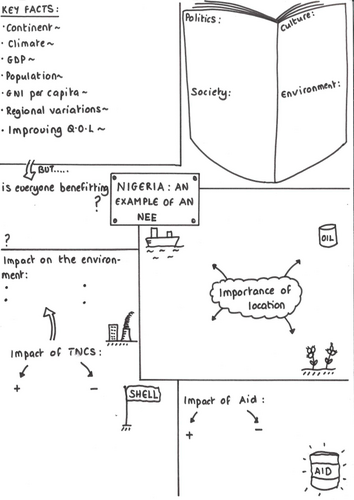 KEY FACTS:
·Continent~
·Climate~
·GDP~
·Population~
·GNI per capita~
·Regional variations~
·Improving Q.O.L~
BUT.....
is everyone benefitting
?
?
Politics:
Culture:
Society:
Environment:
NIGERIA: AN
EXAMPLE OF AN
NEE
OIL
Importance of
location
Impact on the environ-
ment:
Impact of TNCS:
+
-
SHELL
Impact of Aid:
+
-
AID